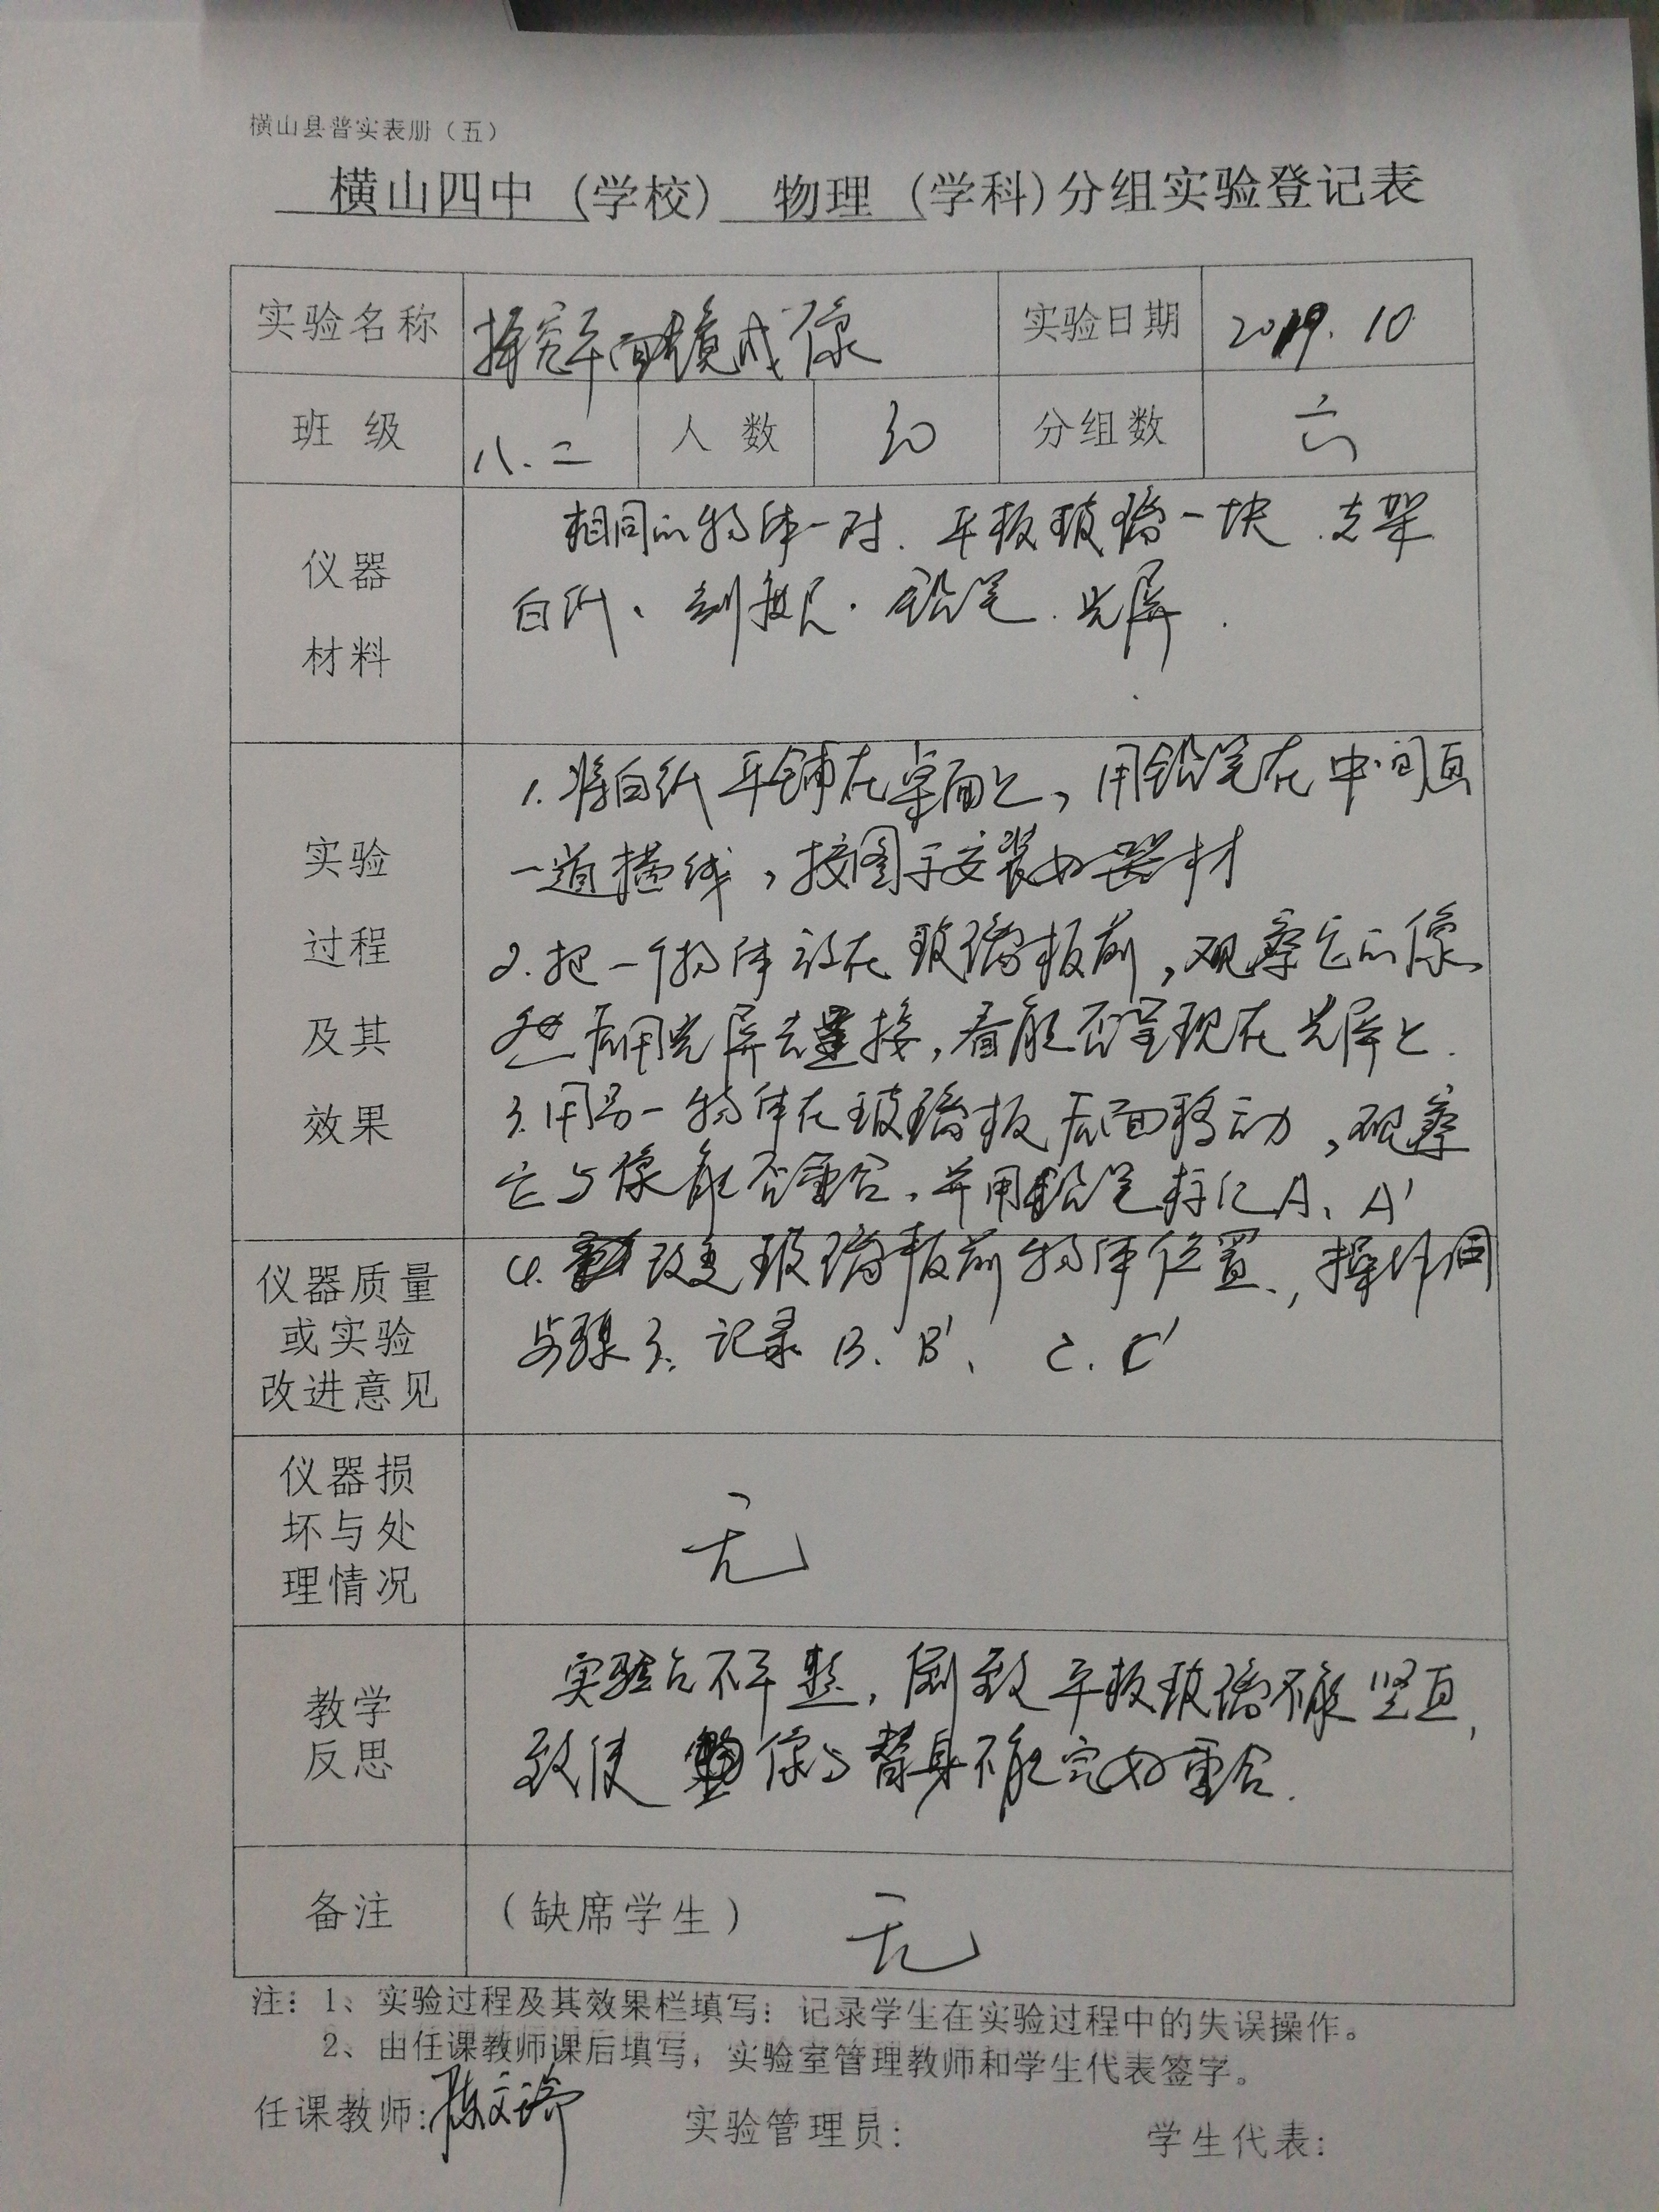 横山县普实表册（五）
横山四中（学校） 物理（学科）分组实验登记表
实验名称 探究平面镜成像 实验日期 2019.10
班 级 八.二 人 数 50 分组数 六
仪器
材料
相同的物体一对. 平板玻璃一块. 支架
白纸、刻度尺. 铅笔. 光屏.
实验
过程
及其
效果
1. 将白纸平铺在桌面上，用铅笔在中间画
一道横线，按图示安装好器材
2. 把一个物体放在玻璃板前，观察它的像，
然后用光屏去承接，看能否呈现在光屏上.
3. 用另一物体在玻璃板后面移动，观察
它与像能否重合，并用铅笔标记A、A'
仪器质量
或实验
改进意见
4. 改变玻璃板前物体位置，操作同
步骤3. 记录 B、B'、 C、C'
仪器损
坏与处
理情况
无
教学
反思
实验台不平整，导致平板玻璃不能竖直，
致使像与替身不能完好重合.
备注 （缺席学生） 无
注：1、实验过程及其效果栏填写：记录学生在实验过程中的失误操作。
2、由任课教师课后填写，实验室管理教师和学生代表签字。
任课教师: 实验管理员: 学生代表: